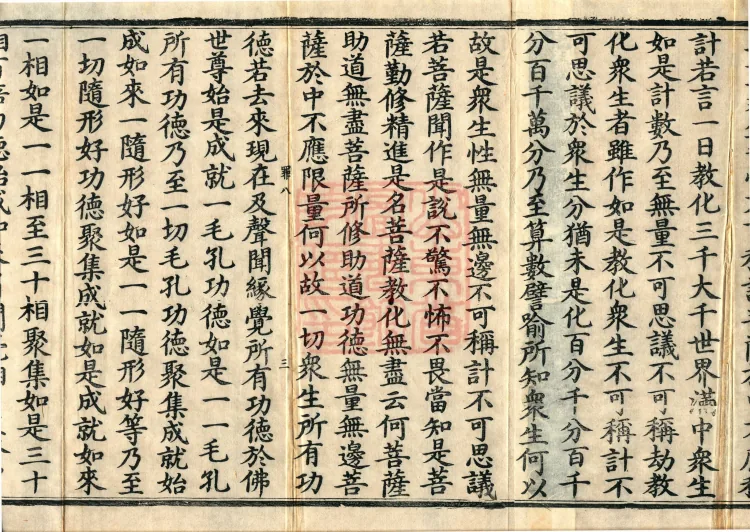 計若言一日教化三千大千世界滿中衆生
如是計數乃至無量不可思議不可稱劫教
化衆生者雖作如是教化衆生不可稱計不
可思議於衆生分猶未是化百分千分百千
分百千萬分乃至算數譬喻所知衆生何以
故是衆生性無量無邊不可稱計不可思議
若菩薩聞作是說不驚不怖不畏當知是菩
薩勤修精進是名菩薩教化無盡云何菩薩
助道無盡菩薩所修助道功德無量無邊菩
薩於中不應限量何以故一切衆生所有功
罪八
三
德若去來現在及聲聞緣覺所有功德於佛
世尊始是成就一毛孔功德如是一一毛孔
所有功德乃至一切毛孔功德聚集成就始
成如來一隨形好如是一一隨形好等乃至
一切隨形好功德聚集成就如是成就如來
一相如是一一相至三十相聚集如是三十